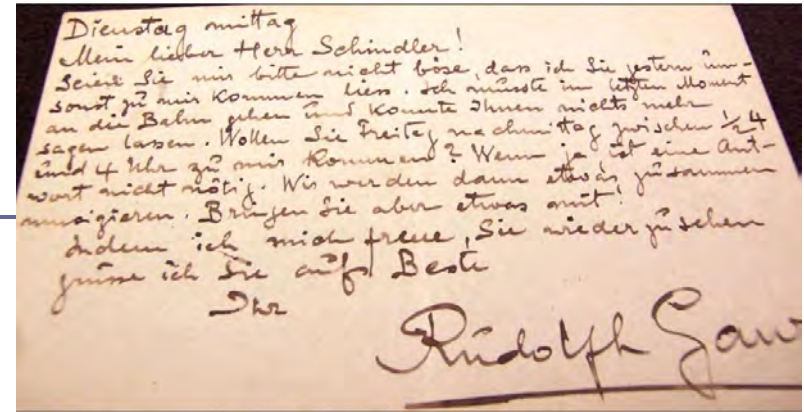 Dienstag mittag
Mein lieber Herr Schindler!
Seien Sie mir bitte nicht böse, dass ich Sie gestern um-
sonst zu mir kommen liess. Ich musste im letzten Moment
an die Bahn gehen und konnte Ihnen nichts mehr
sagen lassen. Wollen Sie Freitag nachmittag zwischen ½ 4
und 4 Uhr zu mir kommen? Wenn ja ist eine Ant-
wort nicht nötig. Wir werden dann etwas zusammen
musizieren. Bringen Sie aber etwas mit!
Indem ich mich freue, Sie wieder zu sehen
grüsse ich Sie aufs Beste
Ihr
Rudolph